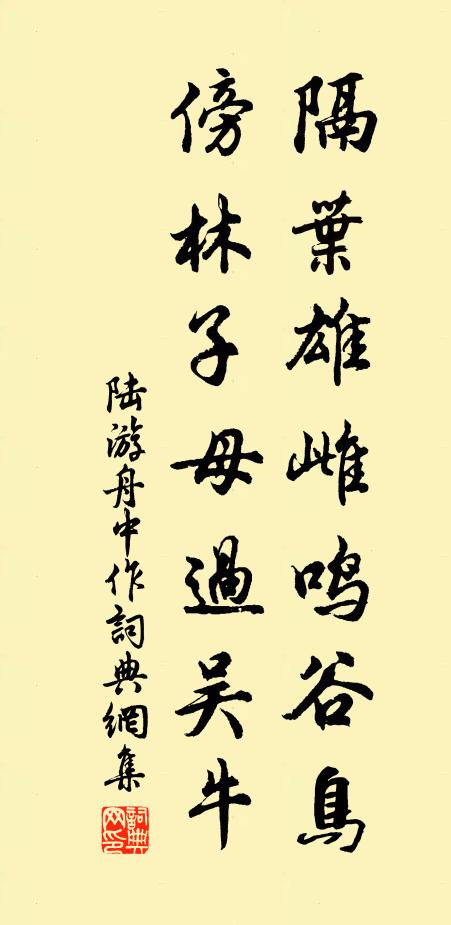 隔葉雄雌鳴谷鳥
傍林子母過吴牛
陆游舟中作詞典網集
詞典網印